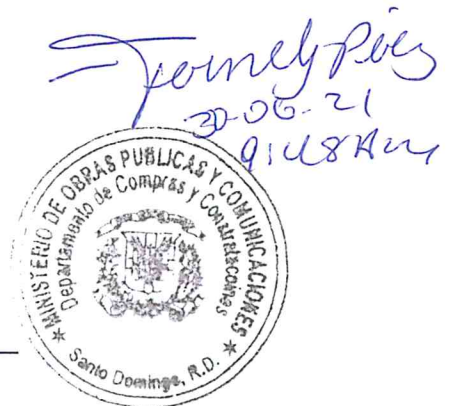 30-06-21
MINISTERIO DE OBRAS PUBLICAS Y COMUNICACIONES
Departamento de Compras y Contrataciones
Santo Domingo, R.D.